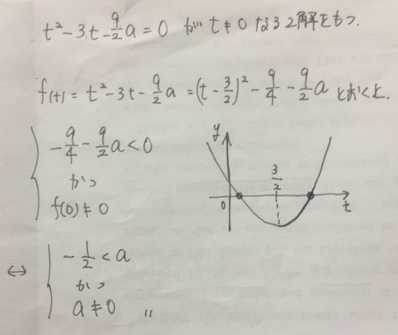 t²-3t-9/2a=0 がt≠0なる2解をもつ.
f(t)=t²-3t-9/2a=(t-3/2)²-9/4-9/2a とおくと.
-9/4-9/2a<0
かつ
f(0)≠0
y
3/2
0
t
⇔
-1/2<a
かつ
a≠0 〃